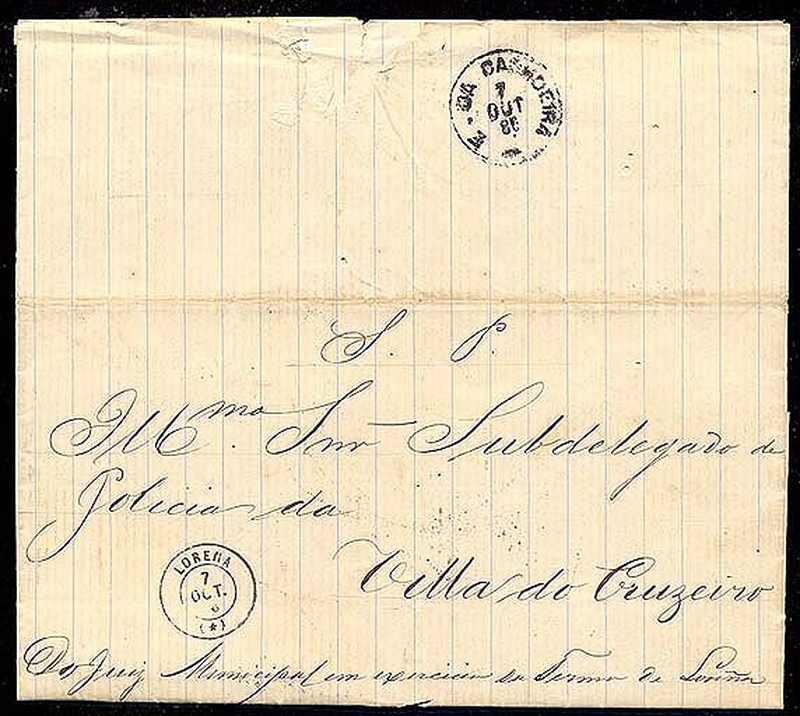 E. DA CACHOEIRA
7
OUT
S. P.
Illmo. Snr Subdelegado de
Policia da
Villa do Cruzeiro
LORENA
7
OUT.
(*)
Do Juiz Municipal em exercicio do Termo de Lorena